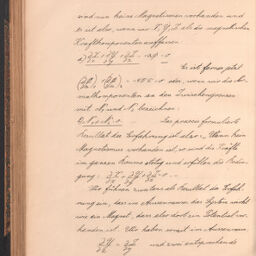 sind nun keine Magnetismen vorhanden und
es ist also, wenn wir X, Y, Z als die magnetischen
Kraftkomponenten auffassen
Es ist ferner jetzt
oder, wenn wir die Nor-
malkomponenten an den Zwischengrenzen
mit N₁ und N₂ bezeichnen:
Das präzise formulierte
Resultat der Erfahrung ist also: Wenn kein
Magnetismus vorhanden ist so sind die Kräfte
im ganzen Raume stetig und erfüllen die Bedin-
gung: ∂X/∂x + ∂Y/∂y + ∂Z/∂z = 0
Wir führen zweitens als Resultat der Erfah-
rung ein, dass im Aussenraum das System wirkt
wie ein Magnet, dass also dort ein Potential vor-
handen ist. Wir haben somit im Aussenraum
∂Y/∂z = ∂Z/∂y und zwei entsprechende